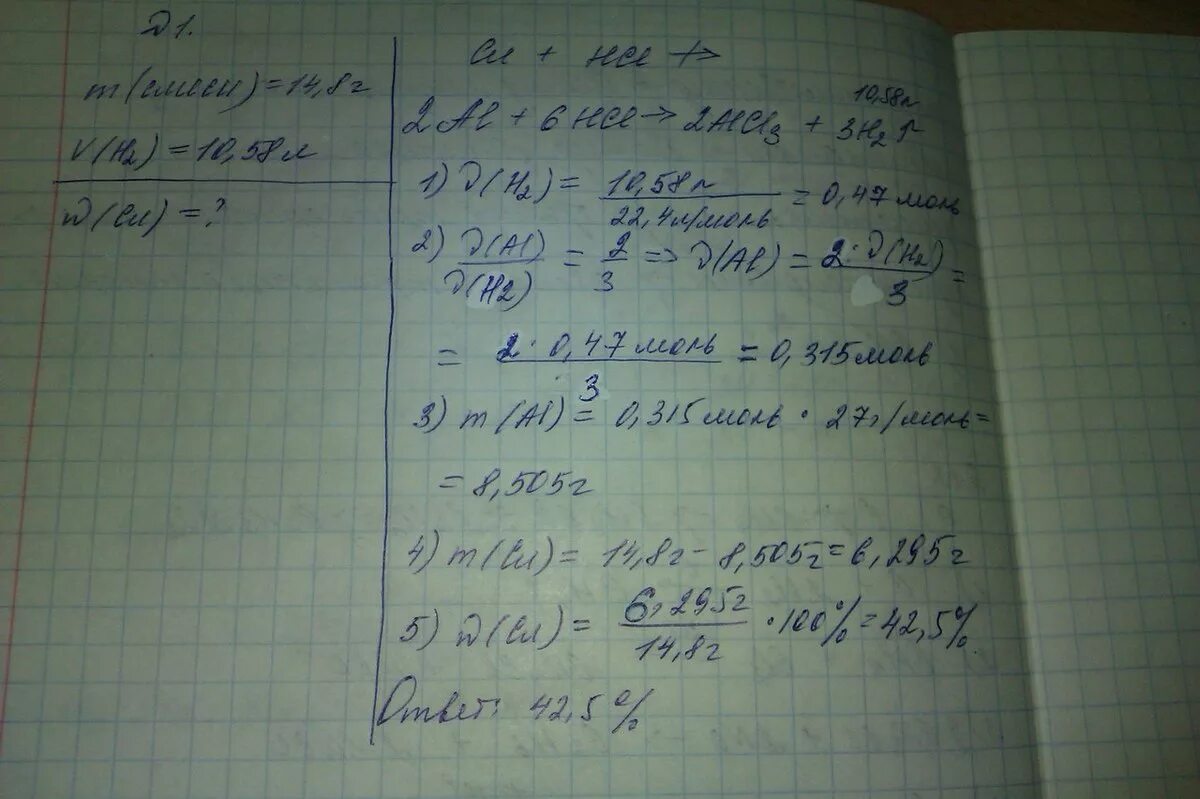 Д1.
m(смеси) = 14,8г
V(H2) = 10,58л
ω(Cu) = ?
Cu + HCl ↛
10,58л
2Al + 6HCl → 2AlCl3 + 3H2↑
1) ν(H2) = 10,58л / 22,4л/моль = 0,47 моль
2) ν(Al) / ν(H2) = 2/3 => ν(Al) = 2·ν(H2) / 3 =
= 2·0,47 моль / 3 = 0,315 моль
3) m(Al) = 0,315 моль · 27г/моль =
= 8,505г
4) m(Cu) = 14,8г - 8,505г = 6,295г
5) ω(Cu) = 6,295г / 14,8г · 100% = 42,5%.
Ответ: 42,5%